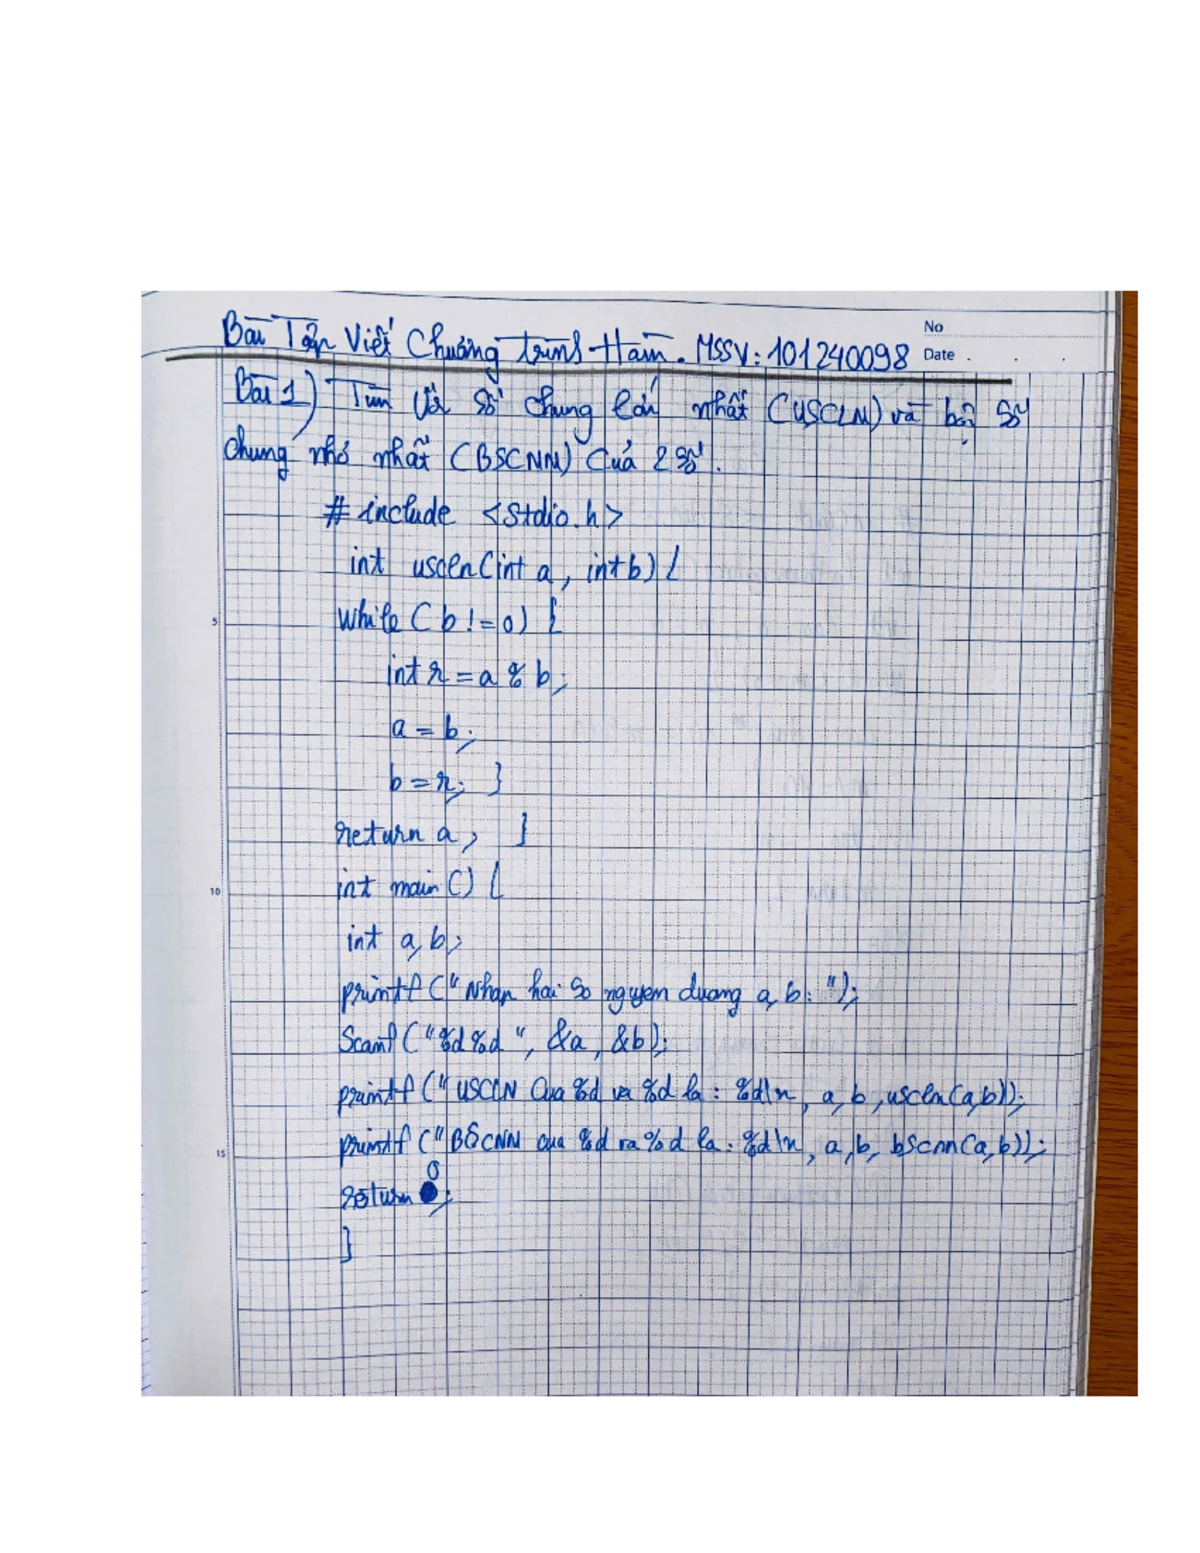 Bài Tập Viết Chương trình Hàm. MSSV: 101240098
No
Date . . .
Bài 1) Tìm Ước số chung lớn nhất (USCLN) và bội số
chung nhỏ nhất (BSCNN) của 2 số.
# include <Stdio.h>
int uscln(int a, int b) {
5
while (b != 0) {
int r = a % b;
a = b;
b = r; }
return a; }
10
int main() {
int a, b;
printf ("Nhap hai so nguyen duong a, b: ");
Scanf ("%d %d ", &a, &b);
printf ("USCLN Cua %d va %d la : %d\n, a, b, uscln(a,b));
printf ("BSCNN cua %d va %d la : %d\n, a, b, bscnn(a,b));
15
return 0;
}